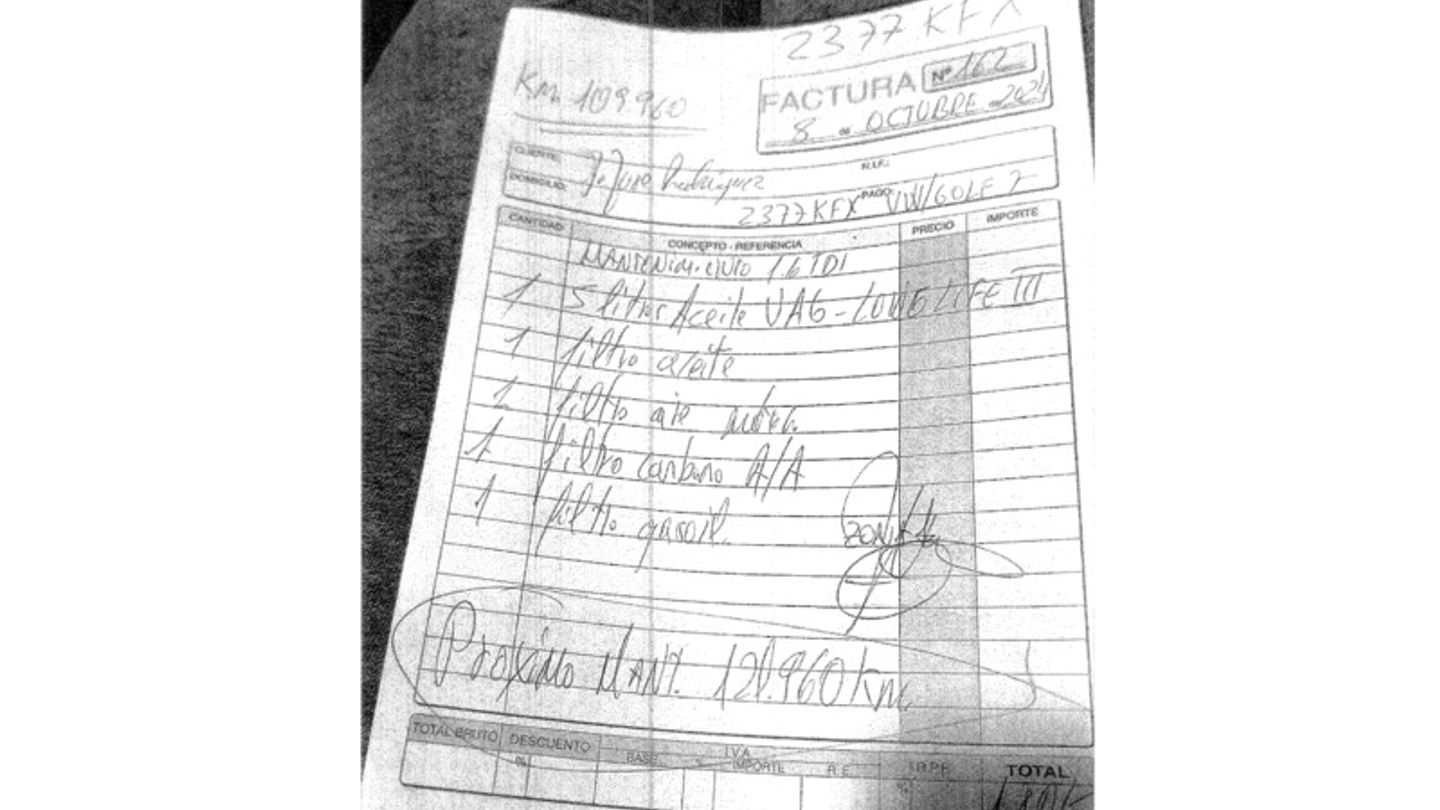 2377 KFX
FACTURA Nº 162
8 de OCTUBRE de 2021
Km. 109.960
CLIENTE: Jose Rodriguez N.I.F.:
DOMICILIO: 2377 KFX PAGO: VW/GOLF 7
CANTIDAD CONCEPTO - REFERENCIA PRECIO IMPORTE
MANTENIMIENTO 1.6 TDI
1 5 litros Aceite VAG - LONG LIFE III
1 filtro aceite
1 filtro aire
1 filtro carbono A/A
1 filtro gasoil
Próximo MANT. 129.960 km.
TOTAL BRUTO DESCUENTO I.V.A.
% BASE % IMPORTE R.E. I.R.P.F. TOTAL
%